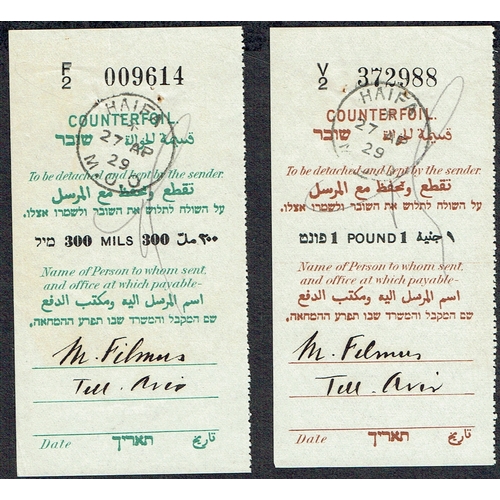 F/2 009614
COUNTERFOIL.
שובר قسيمة الحوالة
HAIFA
27 AP
29
M.O.O
To be detached and kept by the sender.
تقطع وتحفظ مع المرسل
על השולח לתלוש את השובר ולשמרו אצלו.
מיל 300 MILS 300 مل ٣٠٠
Name of Person to whom sent,
and office at which payable-
اسم المرسل اليه ومكتب الدفع
שם המקבל והמשרד שבו תפרע ההמחאה.
M. Filmus
Tell. Aviv
Date תאריך تاريخ
V/2 372988
COUNTERFOIL.
שובר قسيمة الحوالة
HAIFA
27 AP
29
To be detached and kept by the sender.
تقطع وتحفظ مع المرسل
על השולח לתלוש את השובר ולשמרו אצלו.
פונט 1 POUND 1 جنيه ١
Name of Person to whom sent,
and office at which payable-
اسم المرسل اليه ومكتب الدفع
שם המקבל והמשרד שבו תפרע ההמחאה.
M. Filmus
Tell. Aviv
Date תאריך تاريخ